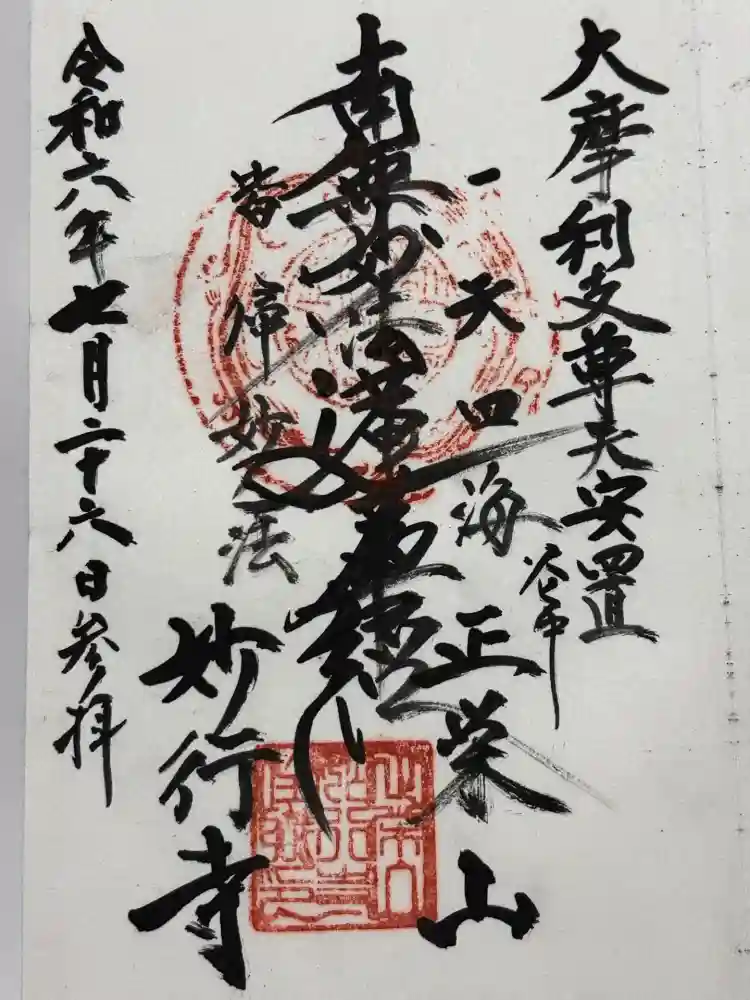 大摩利支尊天安置
谷中
一天四海
正栄山
南無妙法蓮華経
皆帰妙法
妙行寺
令和六年七月二十六日参拝